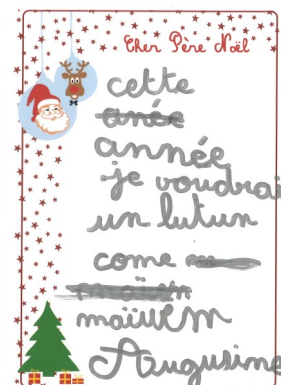 Cher Père Noël
cette
anée
année
je voudrai
un lutun
come
maïwem
Augusime